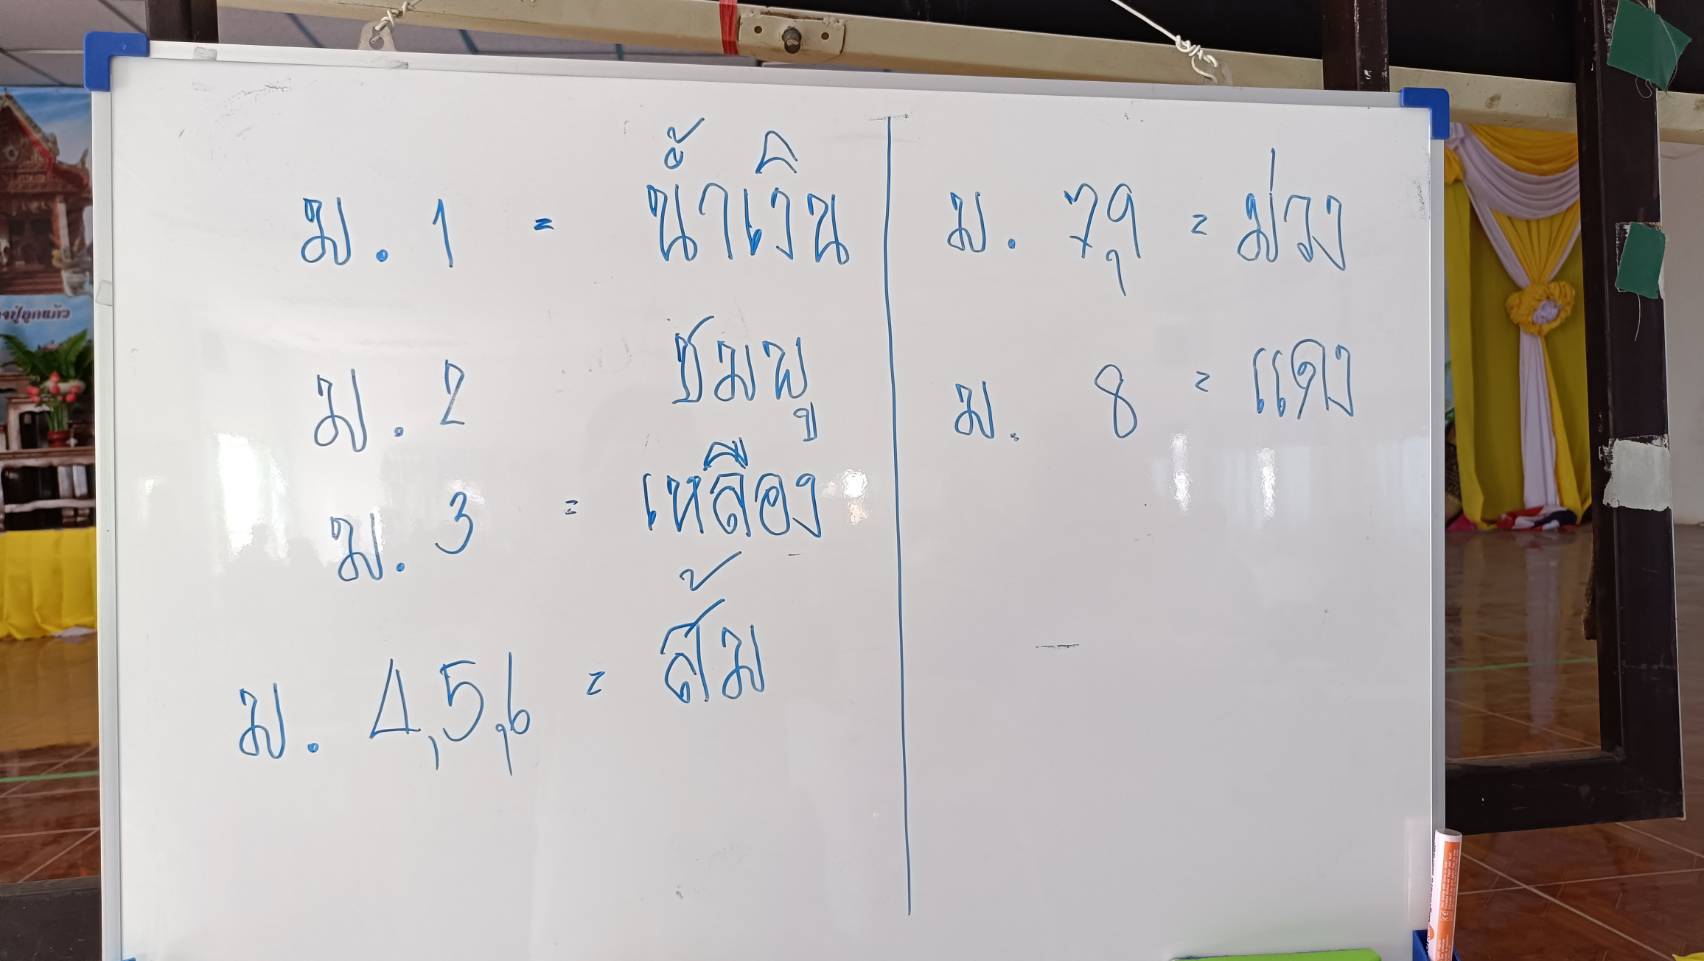 ม. 1 = น้ำเงิน
ม. 2 ชมพู
ม. 3 = เหลือง
ม. 4,5,6 = ส้ม
ม. 7,9 = ม่วง
ม. 8 = แดง